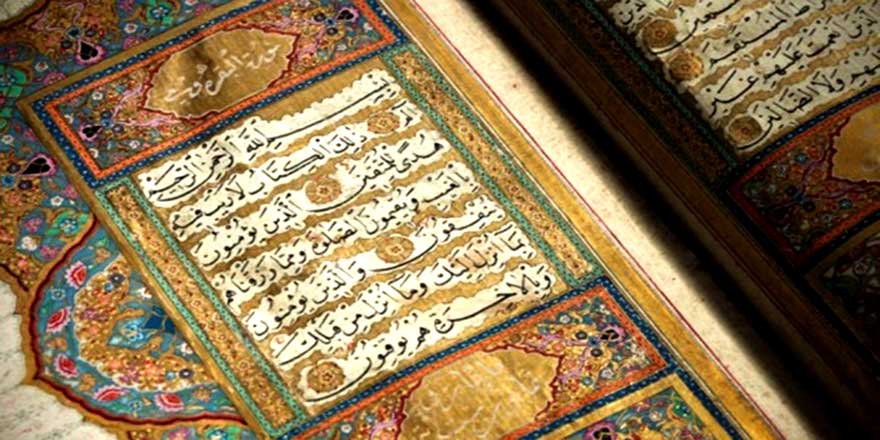 المستقيم
انعمت عليهم غير
عليهم ولا الضالين
سورة البقرة
بسم الله الرحمن الرحيم
الم ذلك الكتاب لا ريب فيه
هدى للمتقين الذين يؤمنون
بالغيب ويقيمون الصلوة ومما رزقناهم
ينفقون والذين يؤمنون
بما انزل اليك وما انزل من قبلك
وبالاخرة هم يوقنون